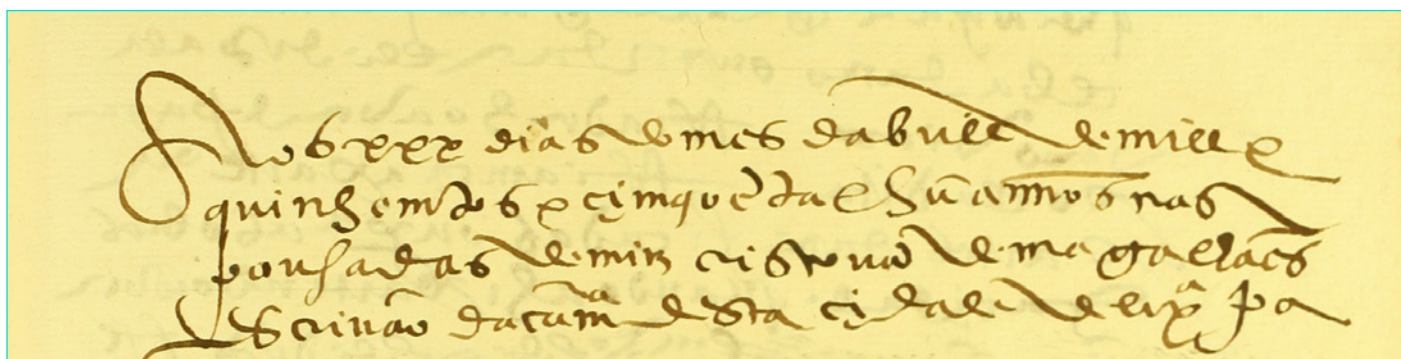 Aos xxx dias do mes dabrill de mill e
quinhemtos e cimquoēta e hũ annos nas
pousadas de mim cristovã de magalhães
Scrivão da cam̃ra desta cidade de lix.ª pa